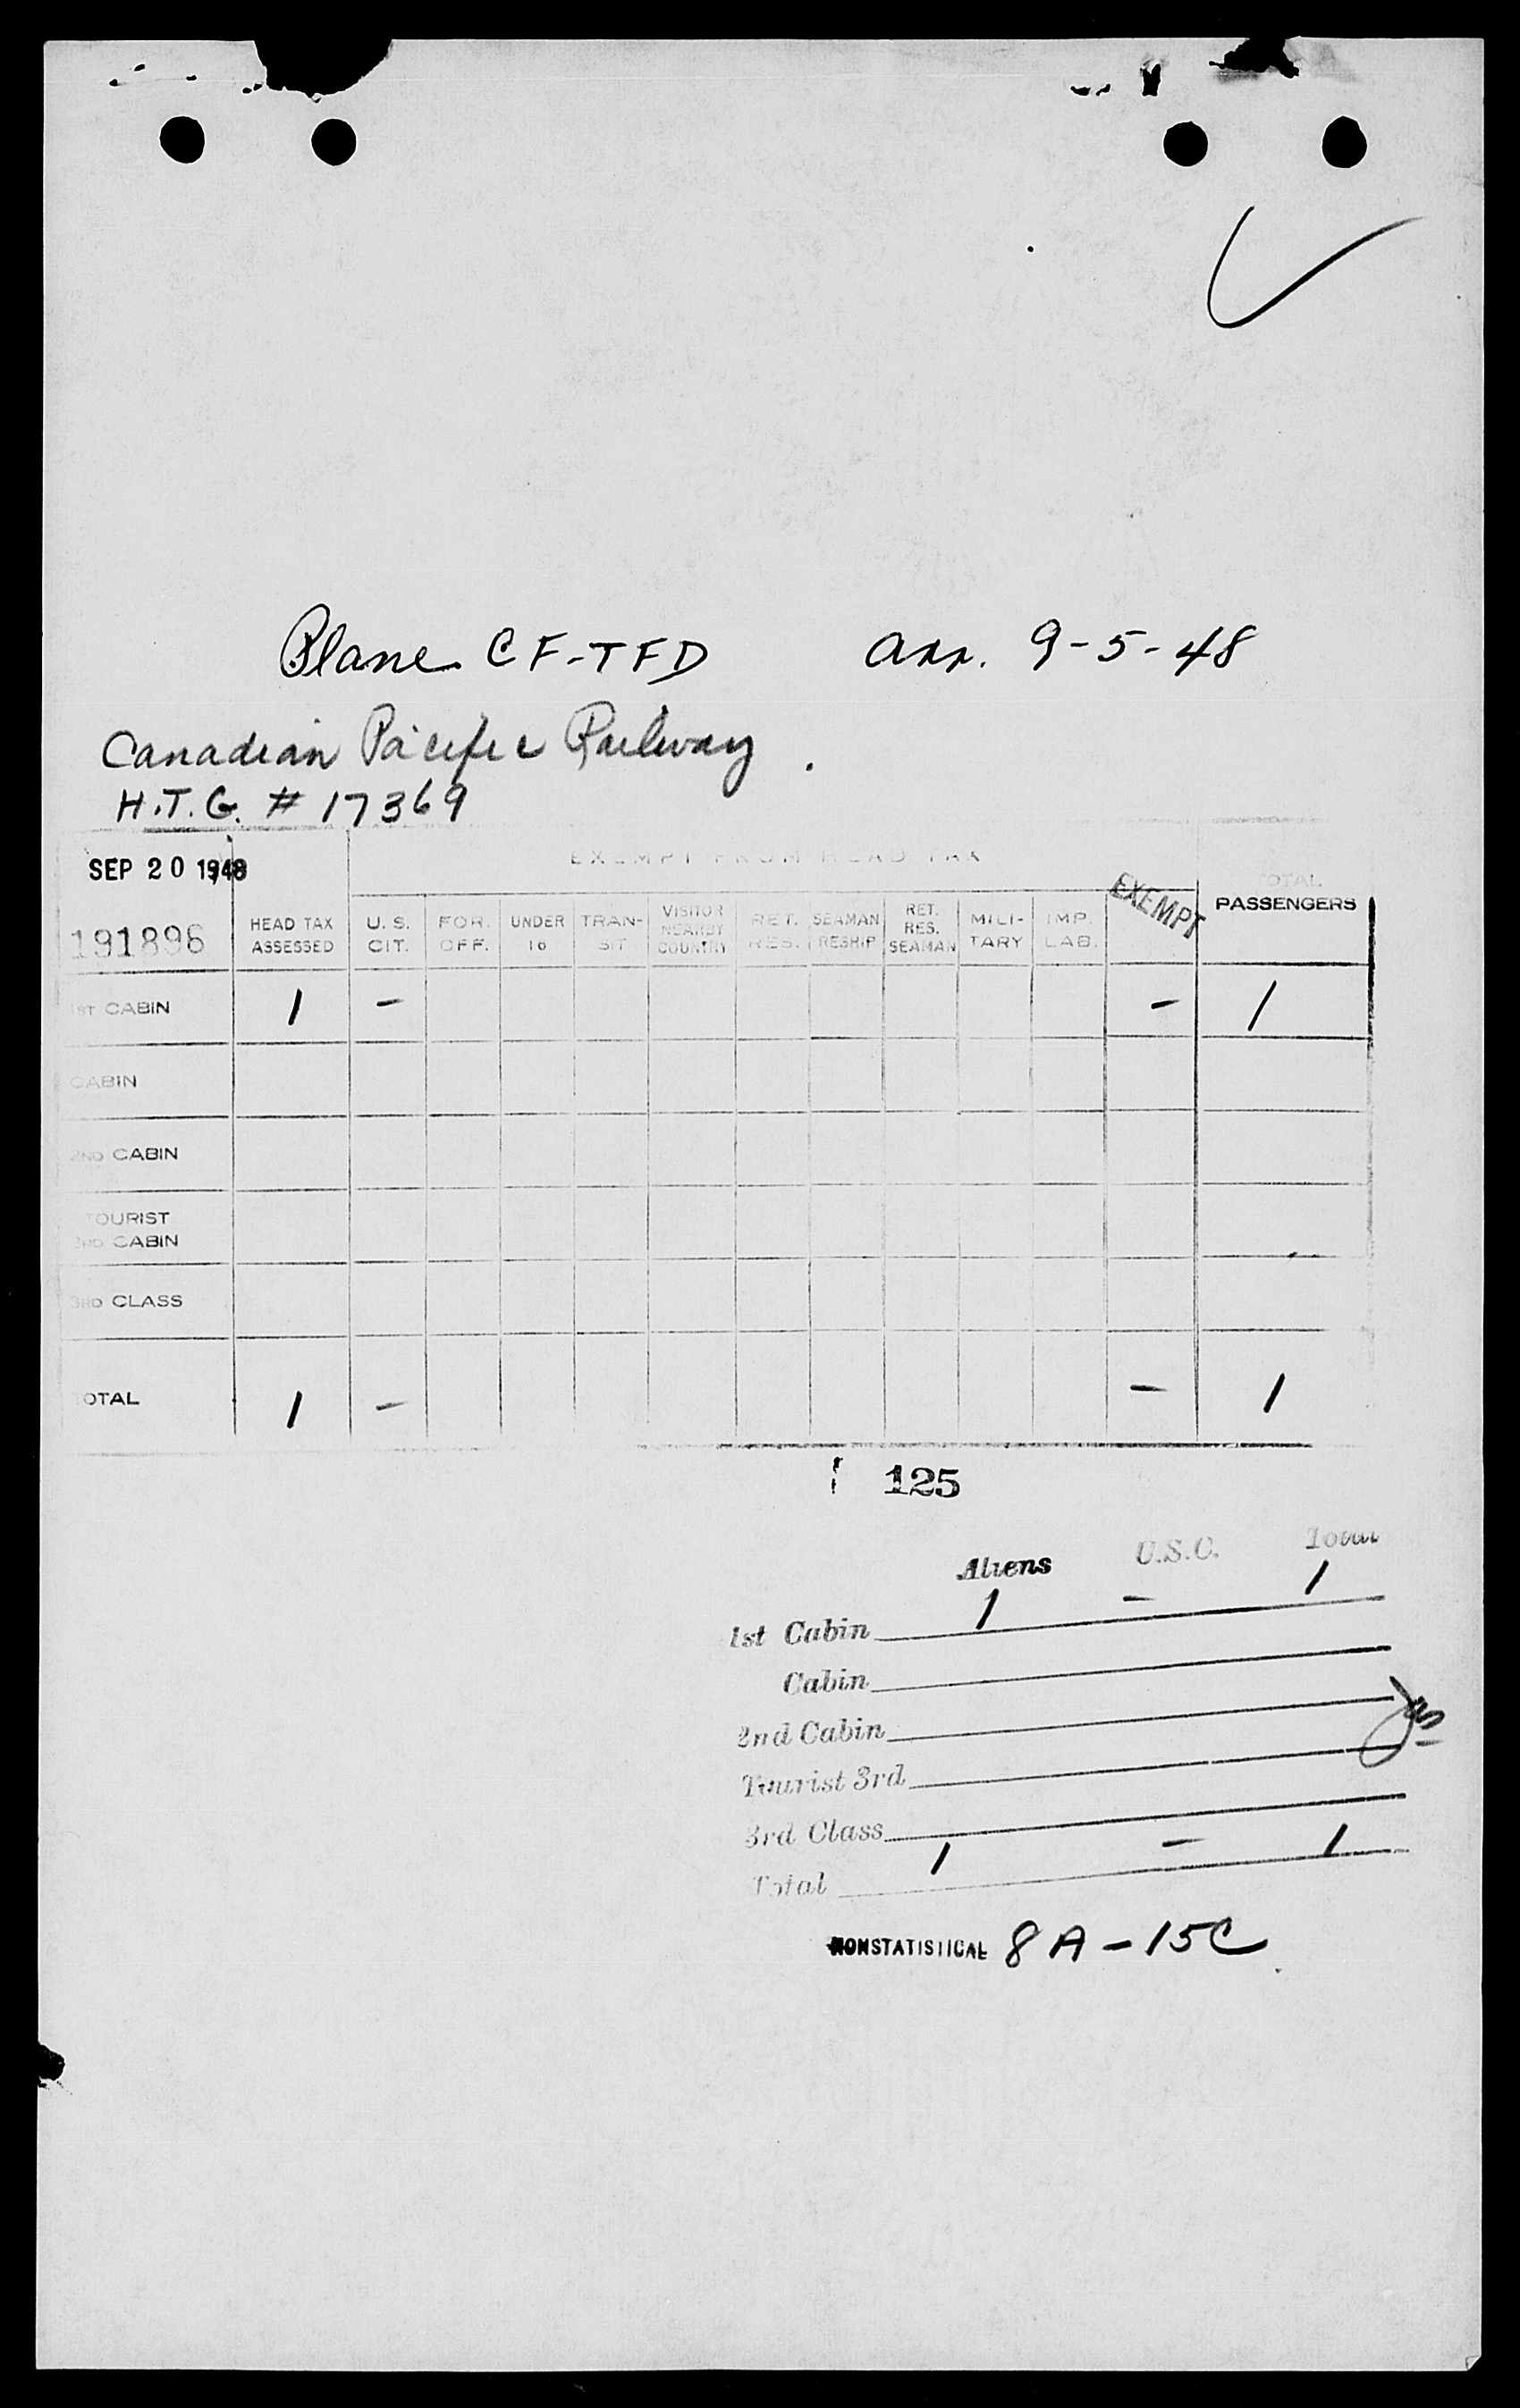 Plane CF-TFD arr. 9-5-48
Canadian Pacific Railway.
H.T.G. # 17369
SEP 20 1948
EXEMPT FROM HEAD TAX
191896
HEAD TAX ASSESSED
U. S. CIT.
FOR. OFF.
UNDER 16
TRAN-SIT
VISITOR NEARBY COUNTRY
RET. RES.
SEAMAN RESHIP
RET. RES. SEAMAN
MILI-TARY
IMP. LAB.
EXEMPT
TOTAL PASSENGERS
1ST CABIN 1 - - 1
CABIN
2ND CABIN
TOURIST
3RD CABIN
3RD CLASS
TOTAL 1 - - 1
125
Aliens U.S.C. Total
1st Cabin 1 - 1
Cabin
2nd Cabin
Tourist 3rd
3rd Class
Total 1 - 1
NONSTATISTICAL 8A-15C